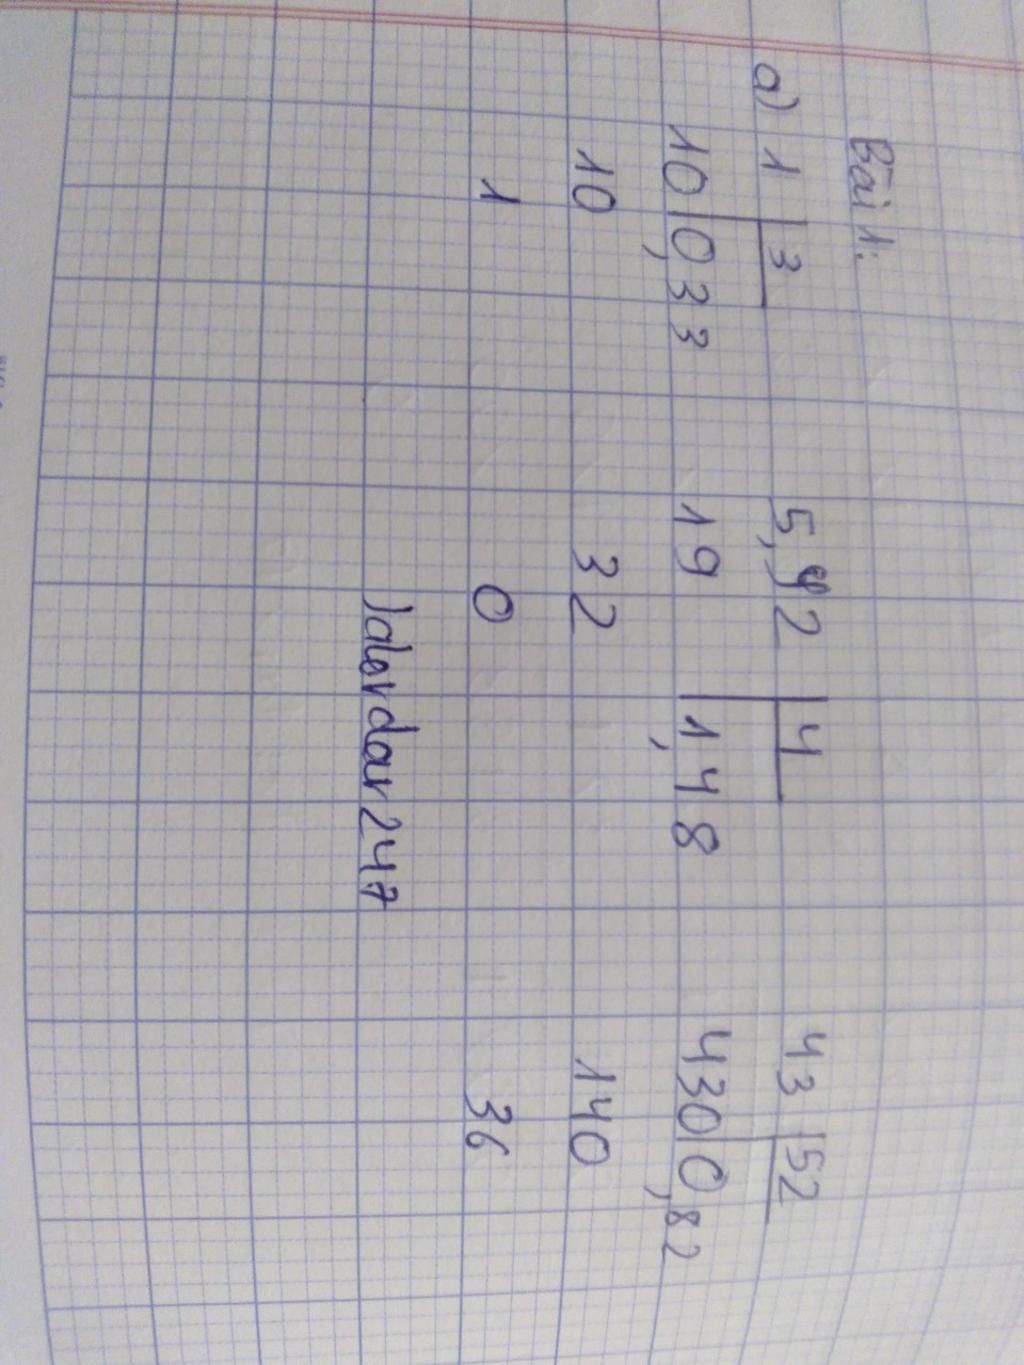 Bài 1:
a) 1 3 5,92 4 43 52
10 0,33 19 1,48 430 0,82
10 32 140
1 0 36